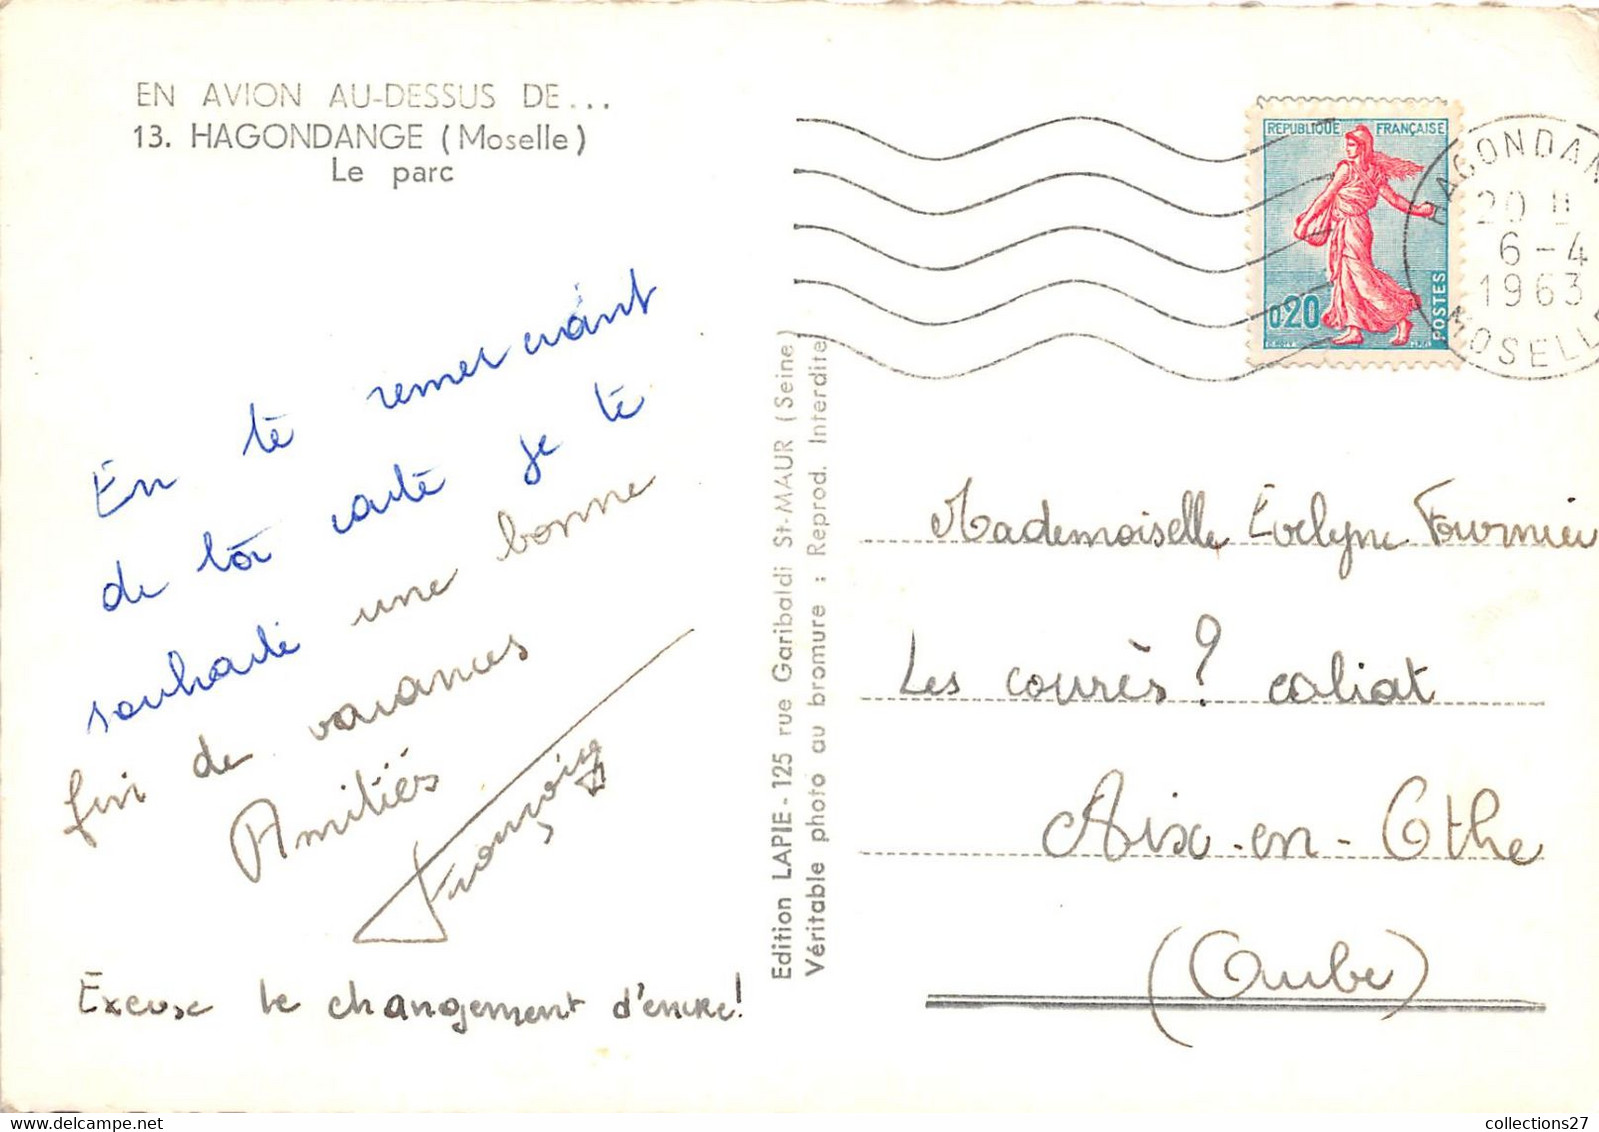 EN AVION AU-DESSUS DE...
13. HAGONDANGE (Moselle)
Le parc
En te remerciant
de ta carte je te
souhaite une bonne
fin de vacances
Amitiés
Excuse le changement d'encre!
Edition LAPIE - 125 rue Garibaldi St-MAUR (Seine)
Véritable photo au bromure : Reprod. Interdite
REPUBLIQUE FRANÇAISE
0,20
POSTES
HAGONDAN
20 H
6-4
1963
MOSELLE
Mademoiselle Evelyne Fournier
Les courès? caliat
Aix-en-Othe
(Aube)
collections27